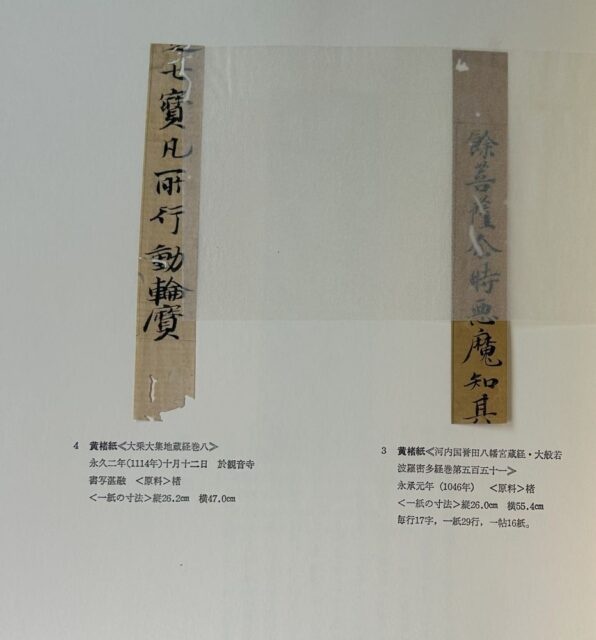 餘菩薩念時悪魔知其
3 黄楮紙≪河内国誉田八幡宮蔵経・大般若
波羅密多経巻第五百五十一≫
永承元年（1046年） ＜原料＞楮
＜一紙の寸法＞縦26.0㎝ 横55.4㎝
毎行17字，一紙29行，一帖16紙。
七寳凡所行動輪寳
4 黄楮紙≪大乗大集地蔵経巻八≫
永久二年(1114年)十月十二日 於観音寺
書写湛融 ＜原料＞楮
＜一紙の寸法＞縦26.2㎝ 横47.0㎝